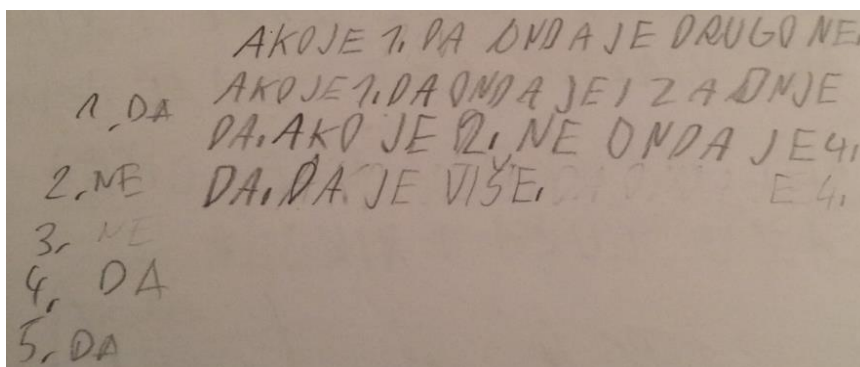 AKO JE 1. DA ONDA JE DRUGO NE.
AKO JE 1. DA ONDA JE I ZADNJE
DA. AKO JE 2. NE ONDA JE 4.
DA. DA JE VIŠE. E 4.
1. DA
2. NE
3. NE
4. DA
5. DA